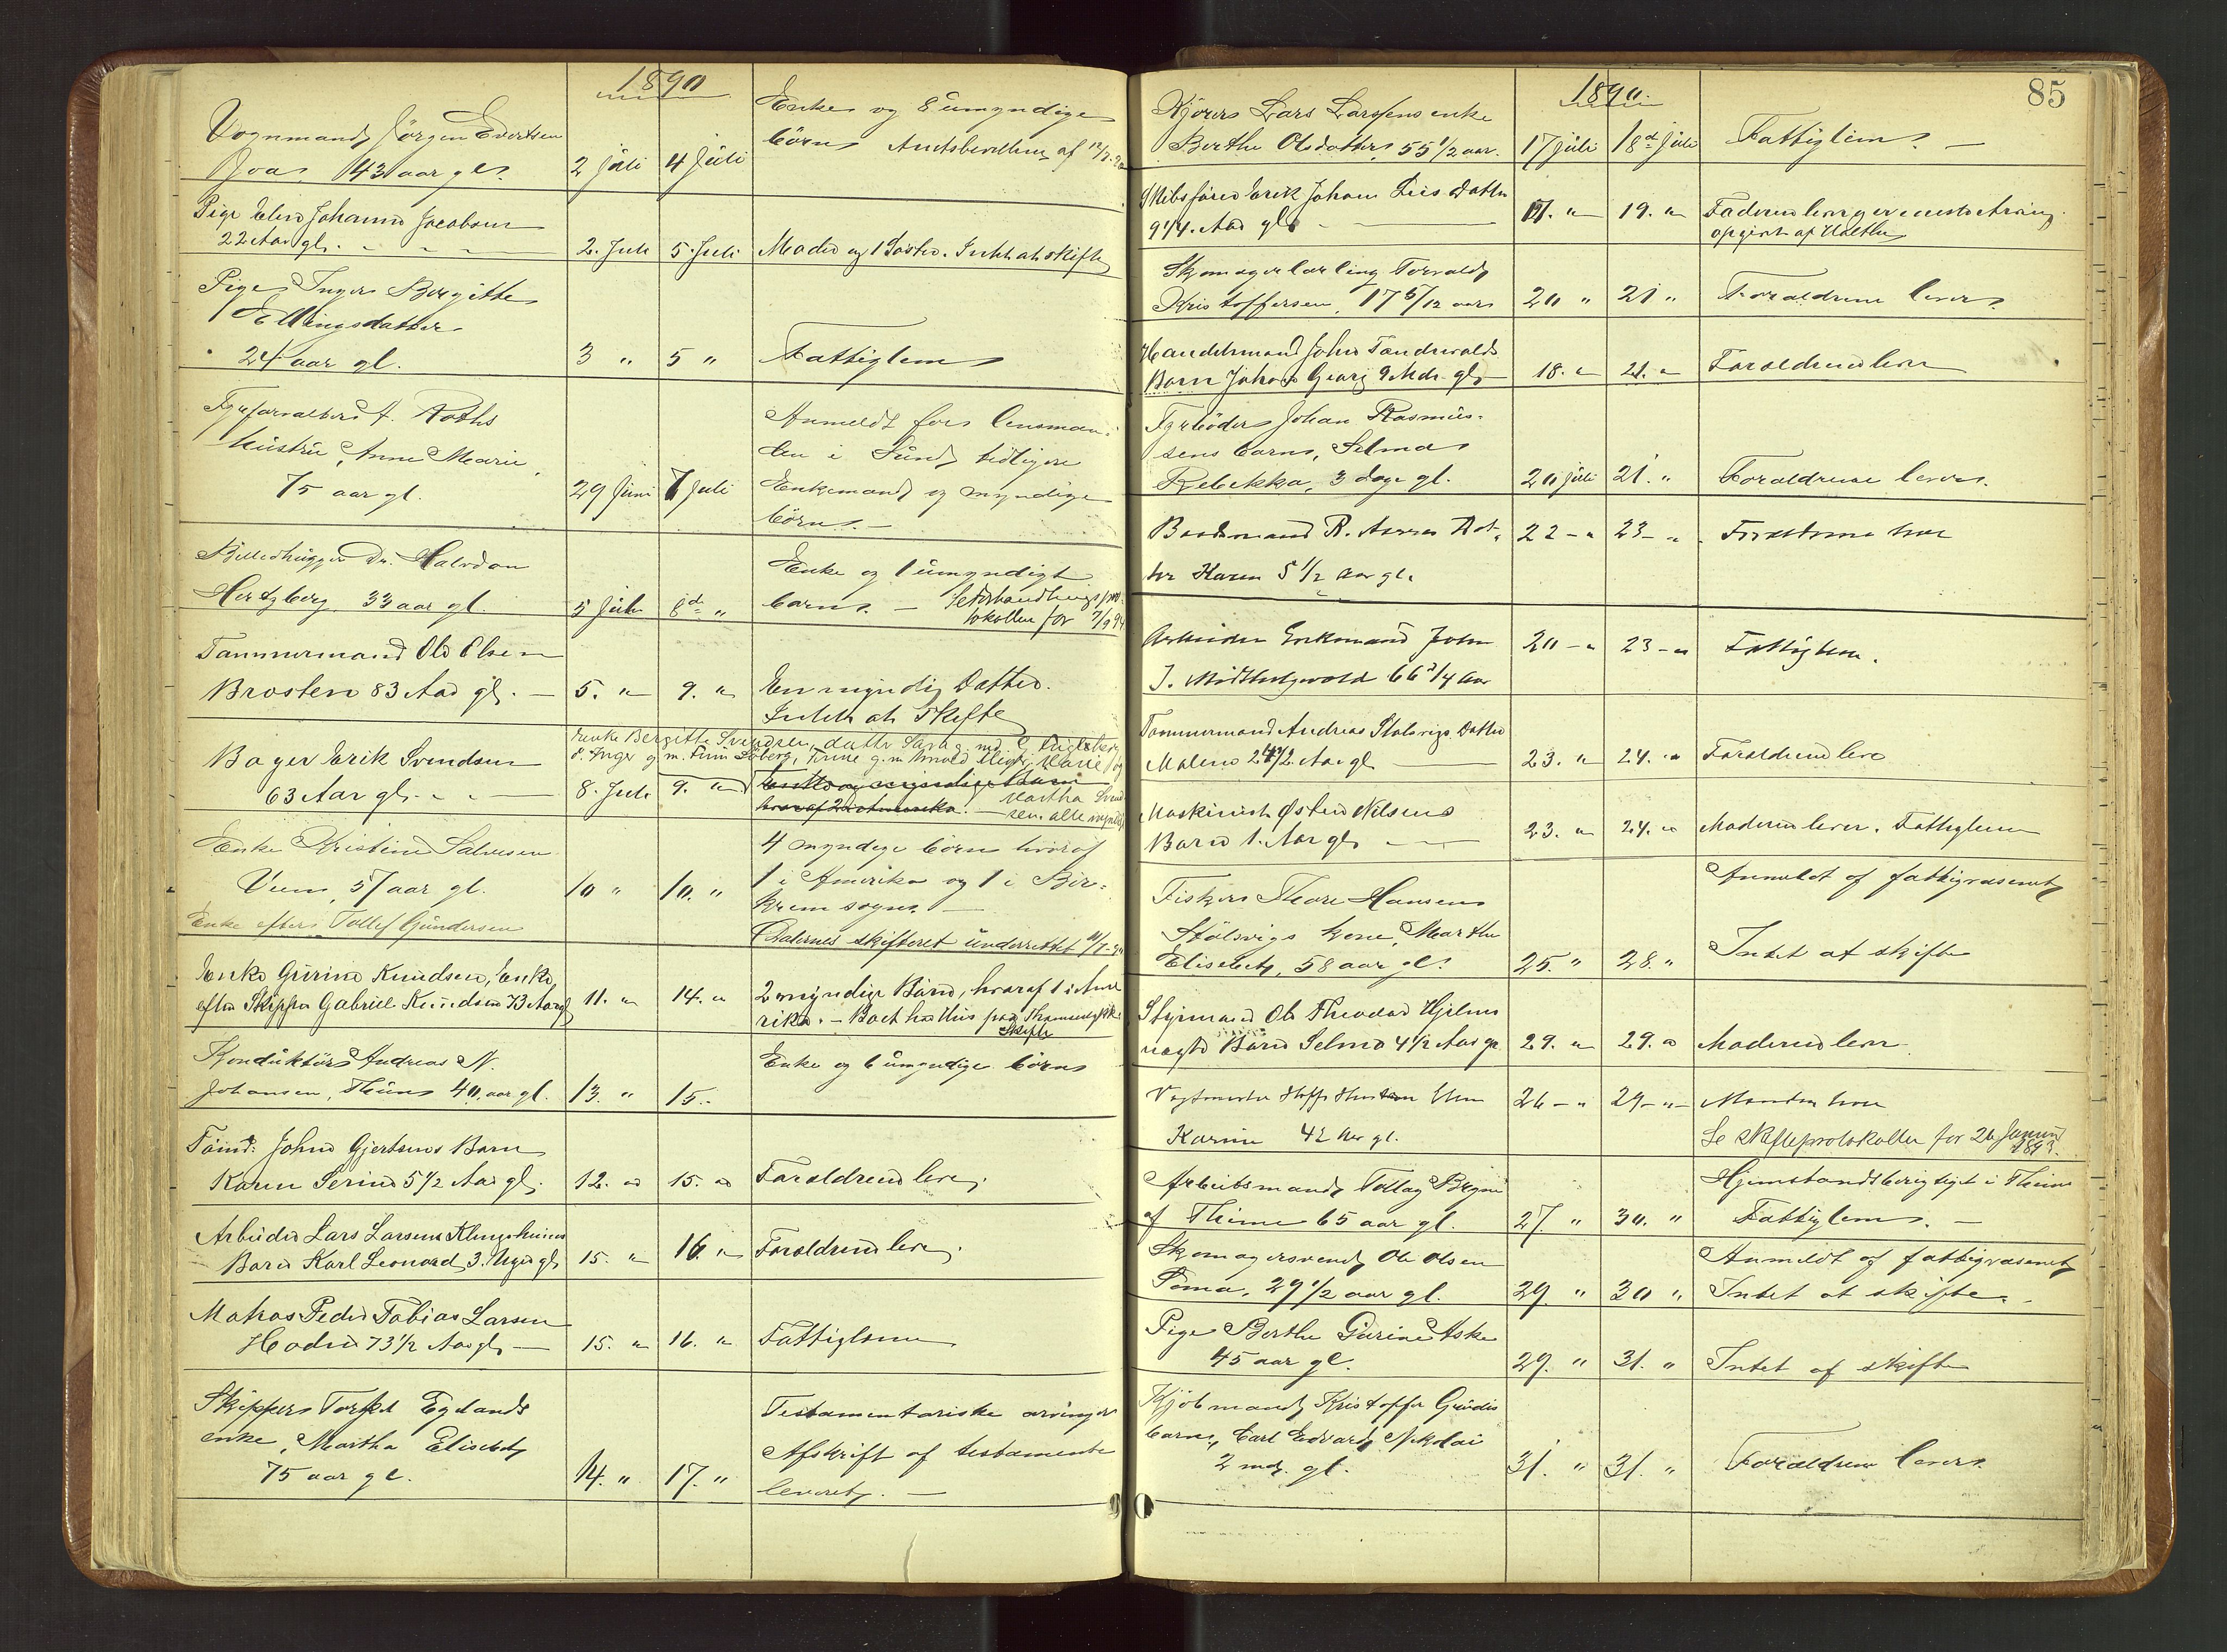 1890
Vognmand Jörgen Evertsen
Joa, 43 aar gl. 2 Juli 4 Juli Enke og 8 umyndige
börn Amtsbevilling af
Pige Elen Johanne Jacobsen
22 Aar gl. 2. Juli 5. Juli Moder og 1 Søster. Intet at skifte
Pige Inger Bergitte
Ellingsdatter
24 aar gl. 3 " 5 " Fattiglem
Fyrforvalter A. Roths
hustru, Anne Marie,
75 aar gl. 29 Juni 7 Juli
Anmeldt for lensman-
den i Sund tidligere
Enkemand og myndige
börn. —
Billedhugger Dr. Halvdan
Hertzberg 33 aar gl. 5 Juli 8d " Enke og 1 umyndigt
barn. — Se forhandlingspro-
tokollen for 7/9 94
Tømmermand Ole Olsen
Brosten 83 Aar gl. — 5. " 9. " En myndig Datter.
Intet at Skifte
Enke Bergitte Svendsen, datter
Bøger Erik Svendsen
63 Aar gl. 8. Juli 9. "
Martha Svend-
sen. alle myndige
Enke Kristine Salvesen
Veen, 57 aar gl. 10 " 10. "
Enke efter Tollef Gundersen
4 myndige börn hvoraf
1 i Amerika og 1 i Bir-
krem sogn. —
Dalernes skifteret underrettet
Enke Gurine Knudsen, Enke
efter Skipper Gabriel Knudsen 73 Aar gl. 11. " 14. " 2 myndige Børn, hvoraf 1 i Ame
rika. — Boet har Hus paa
Skifte
Konduktör Andreas N.
Johansen, Thime 40 aar gl. 13. " 15. Enke og 6 umyndige börn
Tømd. John Gjertsens Barn
Karen Serine 5 1/2 Aar gl. 12. " 15. " Forældrene leve.
Arbeider Lars Larsens Klungehuiens
Barn Karl Leonard 3. Uger gl. 15. " 16. " Forældrene leve.
Matros Peder Tobias Larsen
Hodne 73 1/2 Aar gl. — 15. " 16. " Fattiglem
Skipper Torkel Egelands
enke, Martha Elisabeth
75 aar gl. 14. " 17. "
Testamentariske arvinger
Afskrift af testamente
leveret. —
85
1890
Kjörer Lars Larsens enke
Berthe Olsdatter, 55 1/2 aar. 17 juli 18d juli Fattiglem. —
Skibsfører Erik Johan Liis Datter
9 1/4. Aar gl. 17. " 19. " Faderen lever
opgivet af
Skomagerlærling Torvald
Kristoffersen, 17 5/12 aar 20 " 21 " Forældrene lever.
Handelsmand John Tandrevolds
Barn Johan Georg 9 Mdr. gl. 18. " 21. " Forældrene lever
Fyrböder Johan Rasmus-
sens barn, Selma
Rebekka, 3 dage gl. 20 juli 21. " Forældrene lever.
Baadsmand R. Aarres Dat-
ter Karen 5 1/2 Aar gl. 22 - " 23 - " Forældrene leve
Arbeider Enkemand John
J. Midthelgevold 66 3/4 Aar 20 - " 23 - " Fattiglem.
Tømmermand Andreas Stølsvigs Datter
Malene 2 1/2 Aar gl. 23. " 24. " Forældrene leve
Maskinist Østen Nilsens
Barn 1. Aar gl. 23. " 24. " Moderen lever. Fattiglem
Fisker Thore Hansen
Stølsvigs kone, Marthe
Elisabet, 58 aar gl. 25. " 28. "
Anmeldt af fattigvæsenet
Intet at skifte
Styrmand Ole Theodor Hjelms
uægte Barn Selma 4 1/2 Aar gl. 29. " 29. " Moderen lever
Karine 42 Aar gl. 26 - " 29 - " Manden leve
Se skifteprotokollen for 26 Januar
1893.
Arbeidsmand Tollag Bryne
af Thime 65 aar gl. 27. " 30. " Hjemstandsberigtiget i Thime
Fattiglem. —
Skomagersvend Ole Olsen
Soma, 29 1/2 aar gl. 29. " 30 " Anmeldt af fattigvæsenet
Intet at skifte.
Pige Berthe Gurine Aske
45 aar gl. 29. " 31. " Intet at skifte
Kjöbmand Kristoffer Grudes
barn, Carl Edvard Nikolai
2 md. gl. 31. " 31. " Forældrene lever.